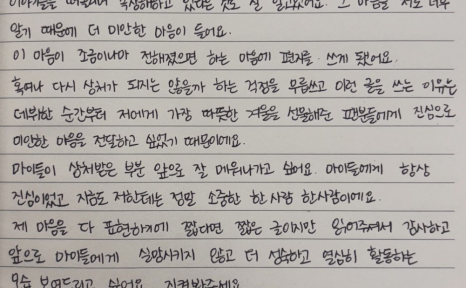 이야기들을 속상해하고 있다는 것도 잘 알고있어요. 그 마음을 저도 너무
알기 때문에 더 미안한 마음이 들어요.
이 마음이 조금이나마 전해졌으면 하는 마음에 편지를 쓰게 됐어요.
혹여나 다시 상처가 되지는 않을까 하는 걱정을 무릅쓰고 이런 글을 쓰는 이유는
데뷔한 순간부터 저에게 가장 따뜻한 겨울을 선물해준 팬분들에게 진심으로
미안한 마음을 전달하고 싶었기 때문이에요.
마이들이 상처받은 부분 앞으로 잘 메워나가고 싶어요. 마이들에게 항상
진심이었고 지금도 저한테는 정말 소중한 한 사람 한사람이에요.
제 마음을 다 표현하기에 짧다면 짧은 글이지만 읽어주셔서 감사하고
앞으로 마이들에게 실망시키지 않고 더 성숙하고 열심히 활동하는
모습 보여드리고 싶어요. 지켜봐주세요